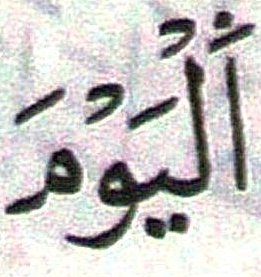 اَلْيَوْمَ